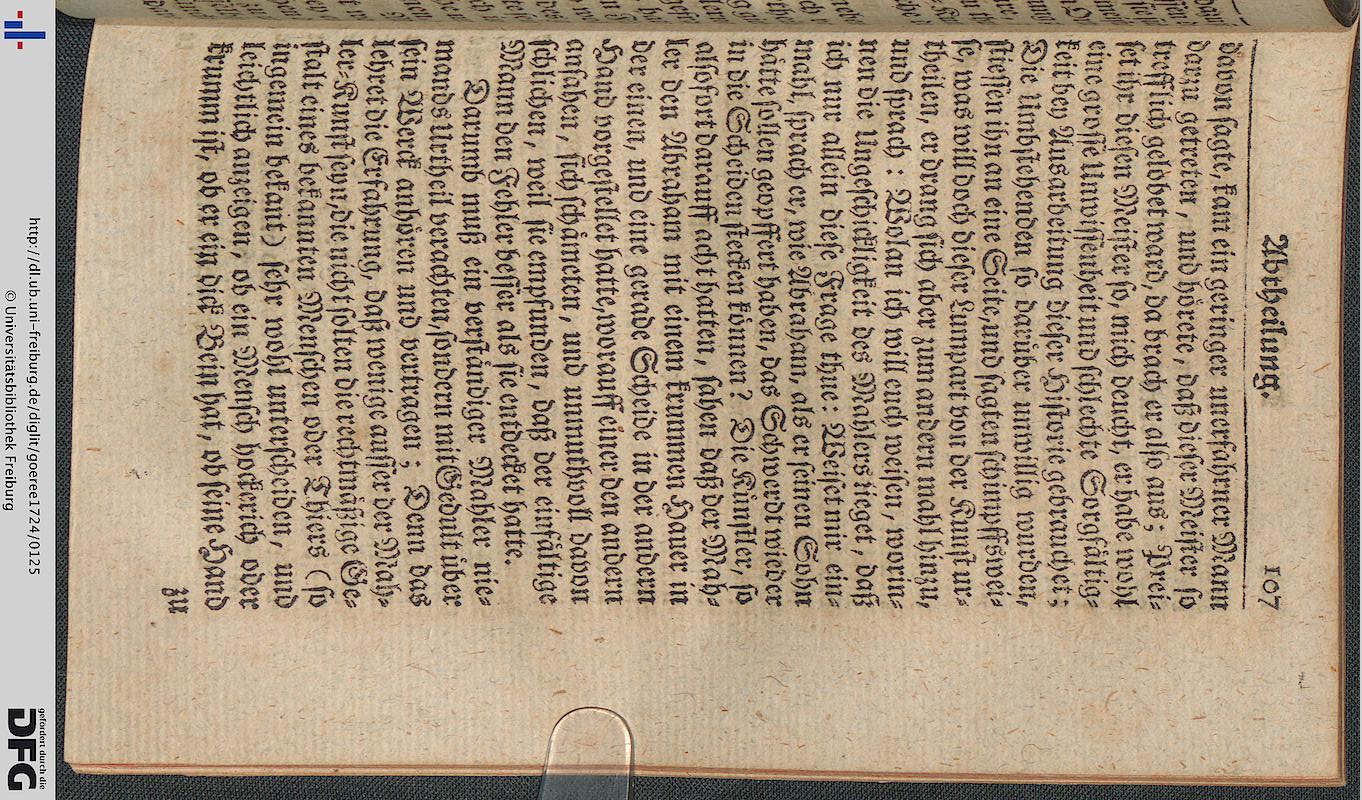 Abtheilung. 107
davon sagte, kam ein geringer unerfahrner Mann
darzu getreten, und hörete, daß dieser Meister so
trefflich gelobet ward, da brach er also aus; Prei-
set ihr diesen Meister so, mich deucht, er habe wohl
eine grosse Unwissenheit und schlechte Sorgfältig-
keit bey Ausarbeitung dieser Historie gebrauchet;
Die Umbstehenden so darüber unwillig wurden,
stiessen ihn an eine Seite, und sagten schimpffswei-
se, was will doch dieser Lumpart von der Kunst ur-
theilen, er drang sich aber zum andern mahl hinzu,
und sprach: Wolan ich will euch weisen, worin-
nen die Ungeschickligkeit des Mahlers lieget, daß
ich nur allein diese Frage thue: Weiset mir ein-
mahl, sprach er, wie Abraham, als er seinen Sohn
hätte sollen geopffert haben, das Schwerdt wieder
in die Scheiden stecken können? Die Künstler, so
alsofort darauff acht hatten, sahen daß der Mah-
ler den Abraham mit einem krummen Hauer in
der einen, und eine gerade Scheide in der andern
Hand vorgestellet hatte, worauff einer den andern
ansahen, sich schämeten, und unmuthvoll davon
schlichen, weil sie empfunden, daß der einfältige
Mann den Fehler besser als sie entdecket hatte.
Darumb muß ein verständiger Mahler nie-
mands Urtheil verachten, sondern mit Gedult über
sein Werck anhören und vertragen; Denn das
lehret die Erfahrung, daß wenige ausser der Mah-
ler-Kunst seyn, die nicht solten die rechtmäßige Ge-
stalt eines bekannten Menschen oder Thiers (so
ingemein bekant) sehr wohl unterscheiden, und
leichtlich anzeigen, ob ein Mensch hockerich oder
krumm ist, ob er ein dick Bein hat, ob seine Hand
zu
http://dl.ub.uni-freiburg.de/diglit/goeree1724/0125
© Universitätsbibliothek Freiburg
gefördert durch die
DFG